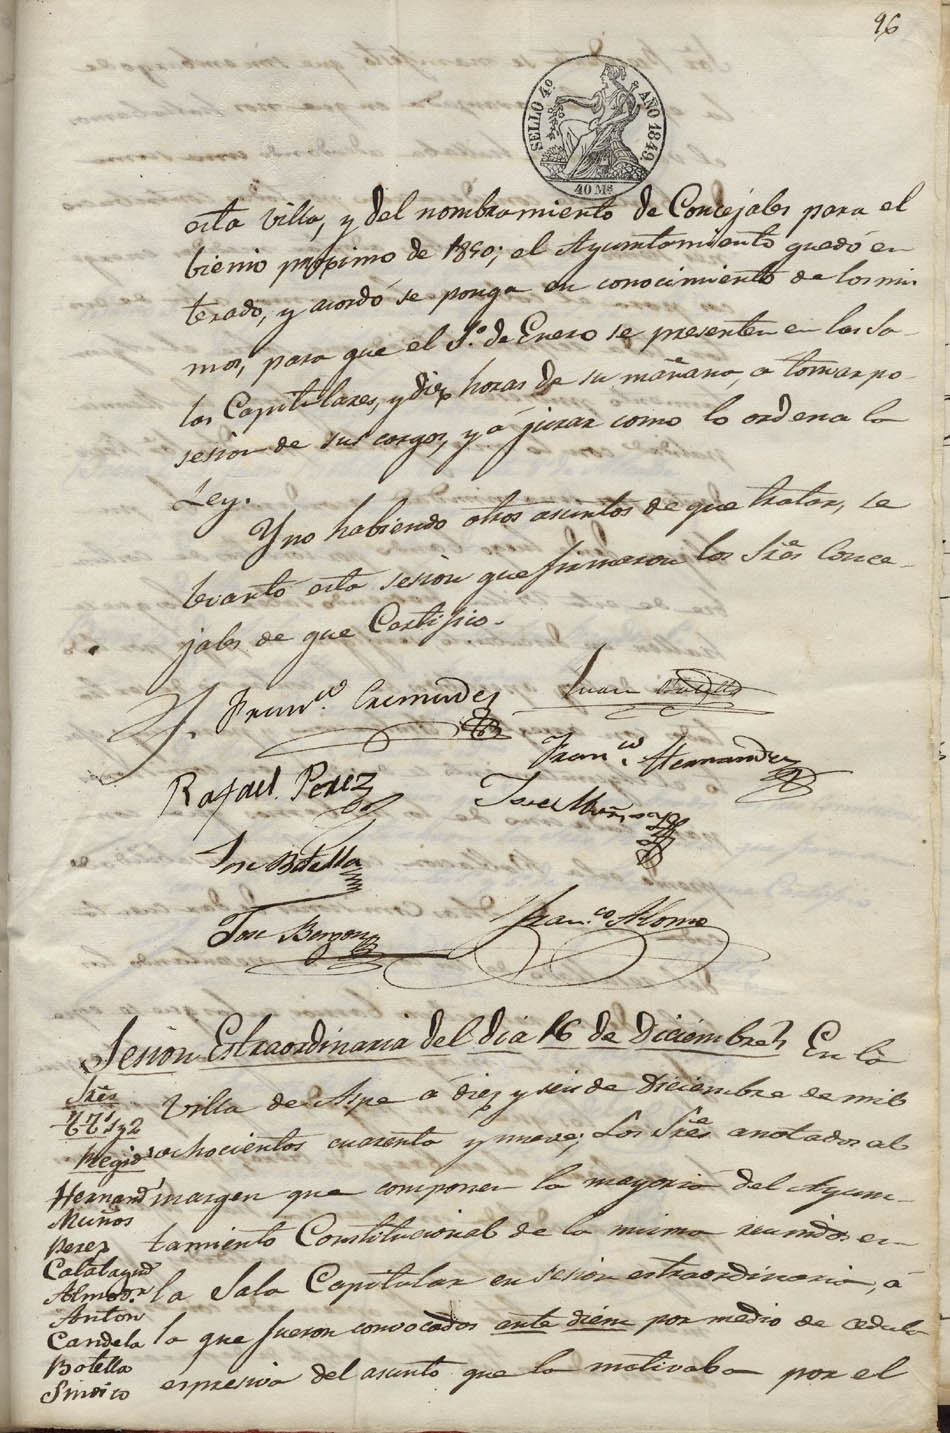 96
SELLO 4º AÑO 1849.
40 Ms
esta villa, y del nombramiento de Concejales para el
bienio proximo de 1850; el Ayuntamiento quedó en
terado, y acordó se ponga en conocimiento de los mis
mos, para que el 1.º de Enero se presenten en las Sa-
las Capitulares, y diez horas de su mañana, a tomar po-
sesion de sus cargos, y á jurar como lo ordena la
Ley.
Y no habiendo otros asuntos de que tratar, se
levantó esta sesion que firmaron los Sres Conce-
jales de que Certifico.
Franco. Cremades
Juan
Franco. Hernandez
Rafael Perez
Jose Muñoz
Jose Botella
Jose
Franco Alonso
Sesion Estraordinaria del dia 16 de Diciembre En la
Villa de Aspe á diez y seis de Diciembre de mil
ochocientos cuarenta y nueve; Los Sres anotados al
margen que componen la mayoria del Ayun-
tamiento Constitucional de la misma reunidos en
la Sala Capitular en sesion estraordinaria, á
la que fueron convocados ante diem por medio de cedula
espresiva del asunto que la motivaba por el
Sres
Ttes 1 y 2
Regids
Hernandz
Muños
Perez
Calatayud
Almodr
Anton
Candela
Botella
Sindico